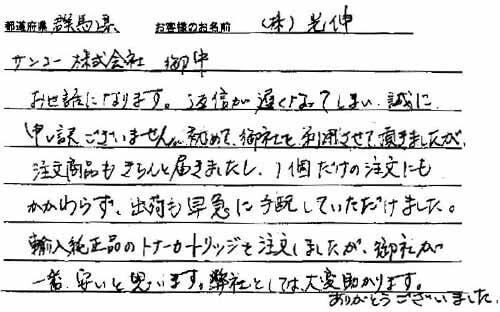 都道府県 群馬県 お客様のお名前 (株)光伸
サンコー株式会社 御中
お世話になります。返信が遅くなってしまい、誠に
申し訳ございません。初めて、御社を利用させて頂きましたが、
注文商品もきちんと届きましたし、1個だけの注文にも
かかわらず、出荷も早急に手配していただけました。
輸入純正品のトナーカートリッジを注文しましたが、御社が
一番、安いと思います。弊社としては、大変助かります。
ありがとうございました。